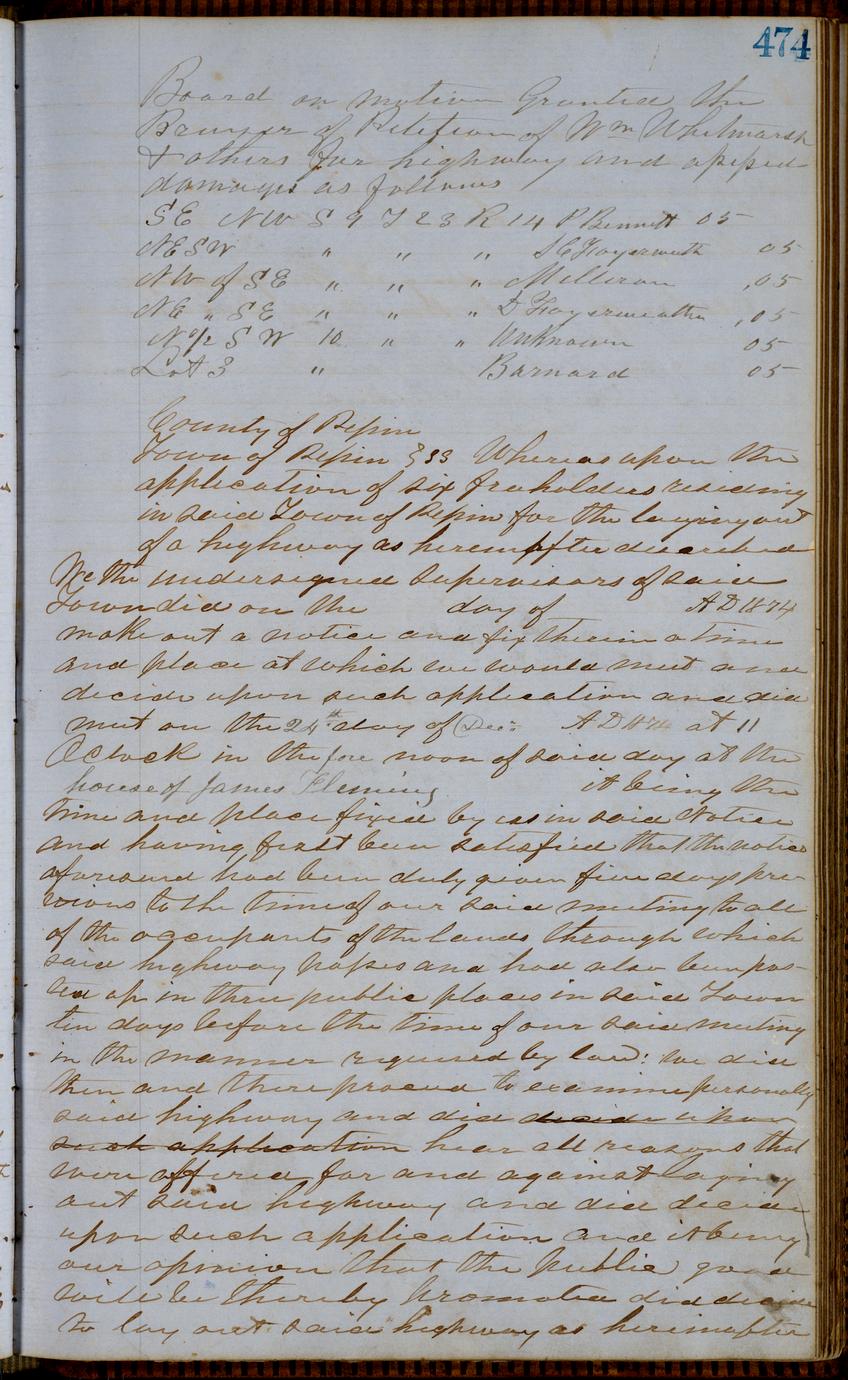 474
Board on motion Granted the
Prayer of Petition of Wm Whitmarsh
& others for highway and assessed
damages as follows
SE NW S 9 T 23 R 14 P Bennett 05
NE SW " " "
NW of SE " " " Milliron ,05
NE " SE " " " D ,05
N 1/2 S W 10 " " Unknown 05
Lot 3 " Barnard 05
County of Pepin
Town of Pepin } SS Whereas upon the
application of six freholders residing
in said Town of Pepin for the laying out
of a highway as hereinafter described
We the undersigned Supervisors of said
Town did on the day of AD 1874
make out a notice and fix therein a time
and place at which we would meet and
decide upon such application and did
meet on the 24th day of Dec. AD 1874 at 11
OClock in the fore noon of said day at the
house of James Fleming it being the
time and place fixed by us in said Notice
and having first been satisfied that the notice
aforesaid had been duly given five days pre-
vious to the time of our said meeting to all
of the occupants of the lands through which
said highway passes and had also been pos-
ted up in three public places in said Town
ten days before the time of our said meeting
in the manner required by law: we did
then and there proceed to examine personally
said highway and did decide upon
such application hear all reasons that
were offered for and against laying
out said highway and did decide
upon such application and it being
our opinion that the public good
will be thereby promoted did decide
to lay out said highway as hereinafter